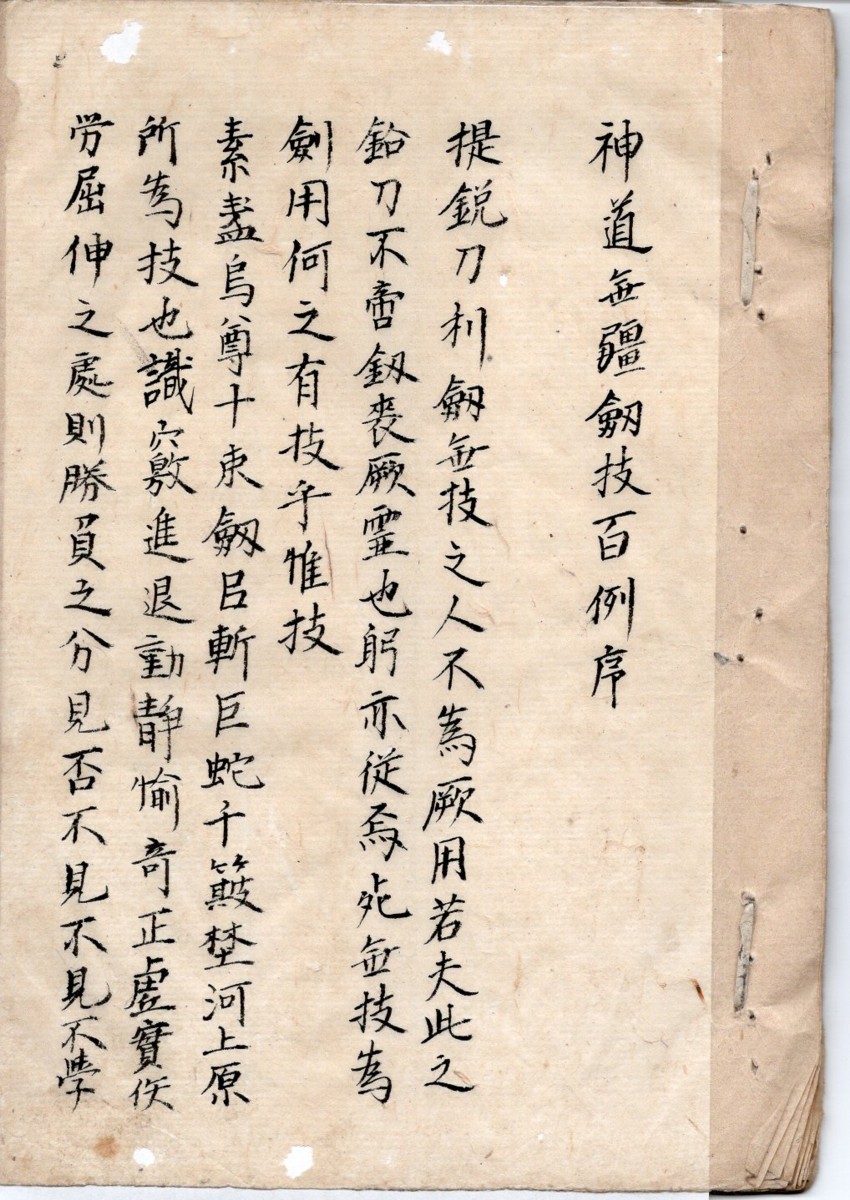 神道無疆劔技百例序
提鋭刀利劔無技之人不為厥用若夫此之
鉛刀不啻釼喪厥霊也躬亦従焉死無技為
劍用何之有技乎惟技
素盞烏尊十束劔㠯斬巨蛇千簸埜河上原
所為技也識穴竅進退動静愉奇正虚實佚
労屈伸之處則勝負之分見否不見不見不学